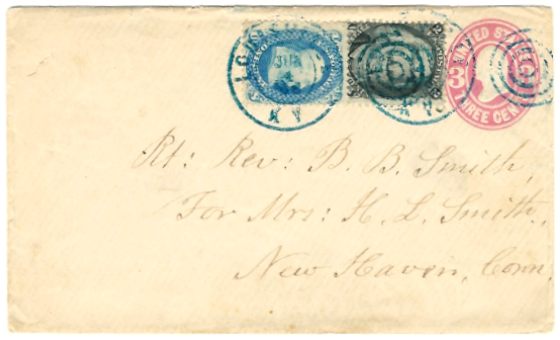 LOUISVILLE
KY.
3
UNITED STATES
THREE CENTS
Rt: Rev: B. B. Smith,
For Mrs: H. L. Smith,
New Haven, Conn.